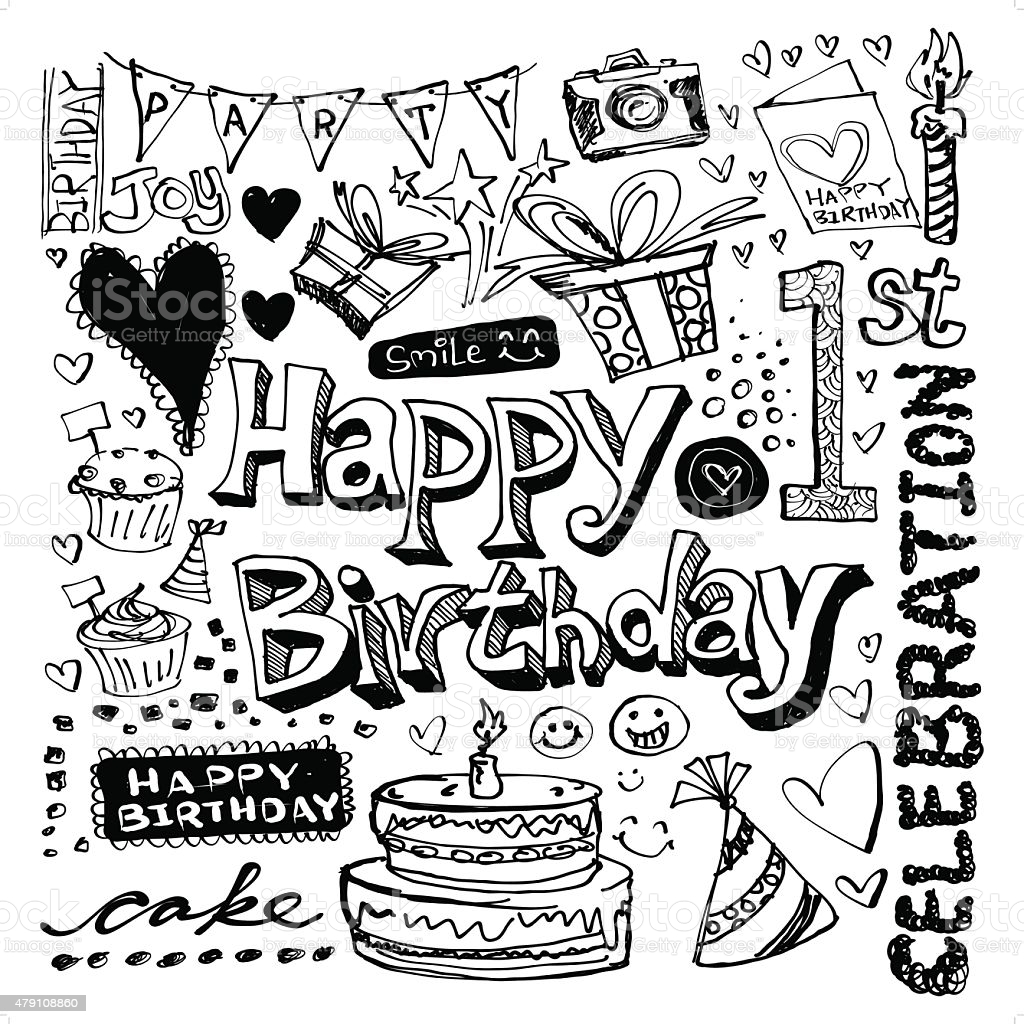 BIRTHDAY
PARTY
JOY
HAPPY
BIRTHDAY
1st
SMiLE
Happy
Birthday
CELEBRATION
HAPPY
BIRTHDAY
cake
iStock
by Getty Images™
479108860